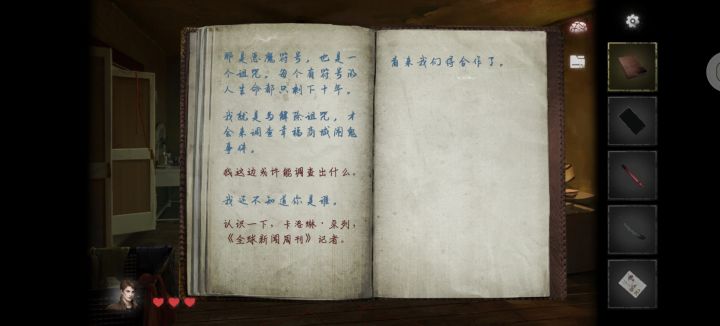 那是恶魔符号，也是一
个诅咒。每个有符号的
人生命都只剩下十年。
我就是为解除诅咒，才
会来调查幸福商城闹鬼
事件。
我这边或许能调查出什么。
我还不知道你是谁。
认识一下，卡洛琳·朵列，
《全球新闻周刊》记者。
看来我们得合作了。